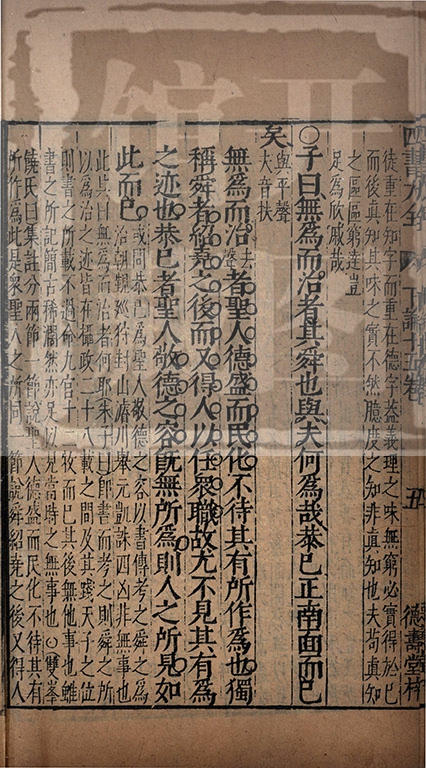 徒重在知字而重在德字蓋義理之味無窮必實得於己
而後眞知其味之實不然臆度之知非眞知也夫苟眞知
之區區窮達豈
足爲欣戚哉
○子曰無爲而治者其舜也與夫何爲哉恭己正南面而已
矣
與平聲
夫音扶
無爲而治者聖人德盛而民化不待其有所作爲也獨
稱舜者紹堯之後而又得人以任衆職故尤不見其有爲
之迹也恭己者聖人敬德之容旣無所爲則人之所見如
此而已
或問恭己爲聖人敬德之容以書傳考之舜之爲
治朝覲廵狩封山濬川舉元凱誅四凶非無事也
此其曰無爲而治者何耶朱子曰卽書而考之則舜之所
以爲治之迹皆在攝政二十八載之間及其踐天子之位
則書之所載不過命九官十二牧而已其後無他事也雖
書之所記簡古稀濶然亦足以見當時之無事也○雙峯
饒氏曰集註分兩節一節說聖人德盛而民化不待其有
所作爲此是衆聖人之所同一節說舜紹堯之後又得人
四書大全
下論十五卷
五
德壽堂梓